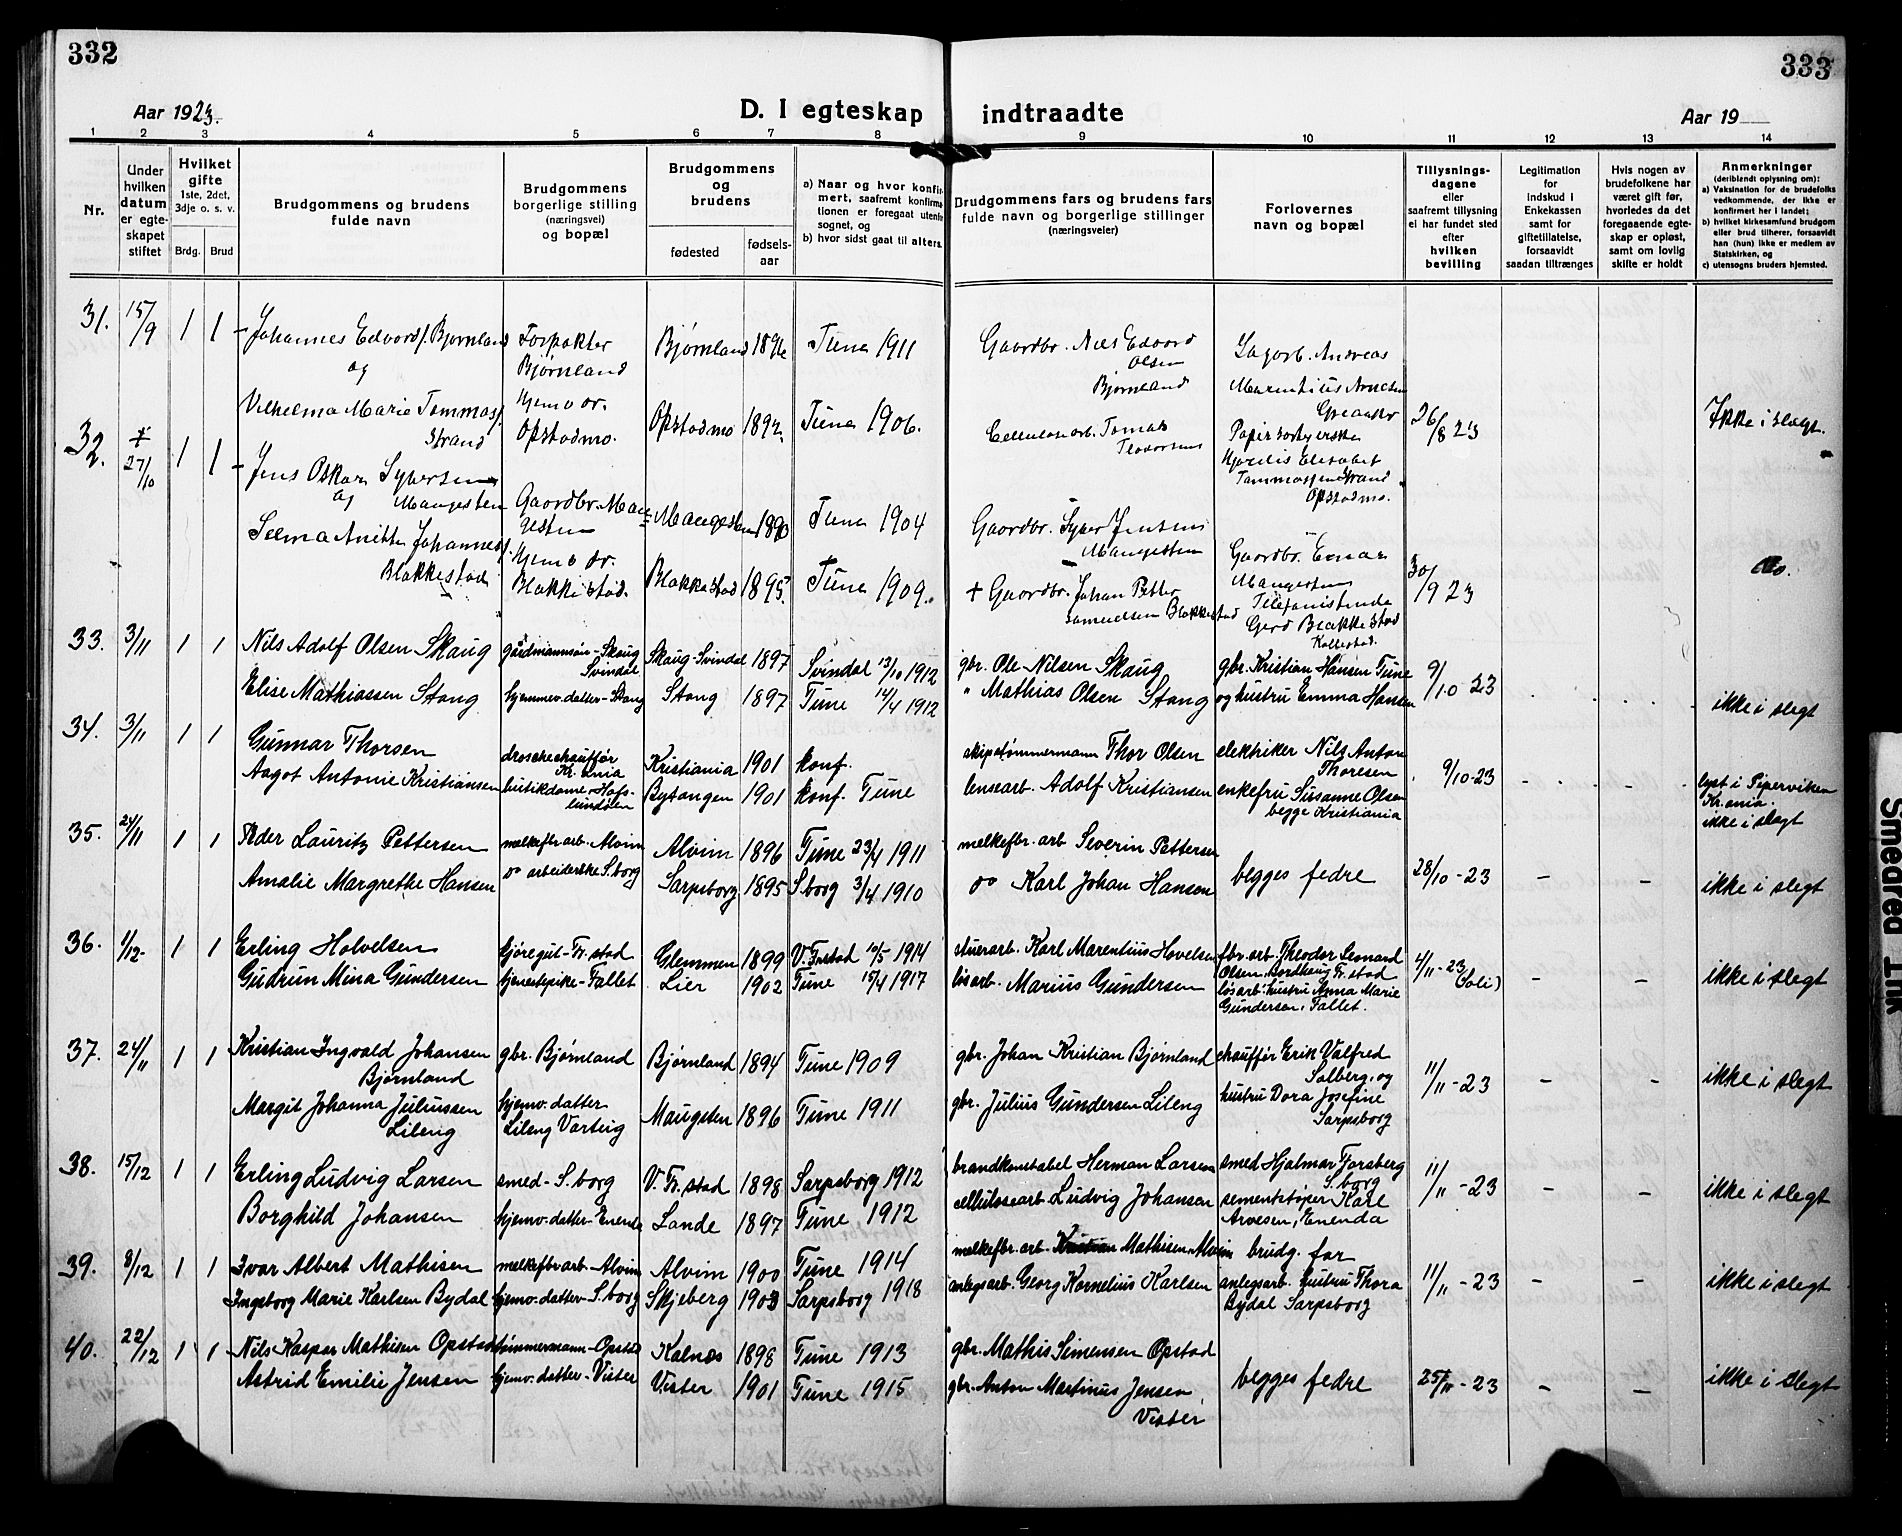 332
333
Aar 1923.
D. I egteskap indtraadte
Aar 19
1 2 3 4 5 6 7 8 9 10 11 12 13 14
Nr.
Under hvilken datum er egteskapet stiftet
Hvilket gifte 1ste, 2det, 3dje o. s. v.
Brdg. Brud
Brudgommens og brudens fulde navn
Brudgommens borgerlige stilling (næringsvei) og bopæl
Brudgommens og brudens
fødested
fødselsaar
a) Naar og hvor konfirmert, saafremt konfirmationen er foregaat utenfor sognet, og
b) hvor sidst gaat til alters.
Brudgommens fars og brudens fars fulde navn og borgerlige stillinger (næringsveier)
Forlovernes navn og bopæl
Tillysningsdagene eller saafremt tillysning ei har fundet sted efter hvilken bevilling
Legitimation for indskud i Enkekassen samt for giftetillatelse, forsaavidt saadan tiltrænges
Hvis nogen av brudefolkene har været gift før, hvorledes da det foregaaende egteskap er opløst, samt om lovlig skifte er holdt
Anmerkninger (deriblandt oplysning om):
a) Vaksination for de brudefolks vedkommende, der ikke er konfirmert her i landet;
b) hvilket kirkesamfund brudgom eller brud tilhører, forsaavidt han (hun) ikke er medlem av Statskirken, og
c) utensogns bruders hjemsted.
31. 15/9 1 1 Johannes Edvard f. Bjørnland Forpakter Bjørnland Bjørnland 1896 Tune 1911 Gaardbr. Nils Edvard Olsen Bjørnland Andreas Marentius
og
Vilhelma Marie Tommasf. Strand Hjemv. dr. Opstadmo. Opstadmo 1892. Tune 1906. Cellulosearb. Tomas Teodorsen Papirsorterske Hjørdis Elisabet Tommassen Strand Opstadmo. 26/8 23 Ikke i slegt.
32. 27/10 1 1 Jens Oskar Syversen Maugesten Gaardbr. Maugesten Maugesten 1890 Tune 1904 Gaardbr. Syver Jensen Maugesten Gaardbr. Einar Maugesten
og
Selma Anitte Johannesf. Blakkestad Hjemv. dr. Blakkestad. Blakkestad 1895. Tune 1909. + Gaardbr. Johan Petter Samuelsen Blakkestad Telefonistinde Gerd Blakkestad 30/9 23 do.
33. 3/11 1 1 Nils Adolf Olsen Skaug gårdmannsøn - Skaug Svindal Skaug-Svindal 1897 Svindal 13/10 1912 gbr. Ole Nilsen Skaug gbr. Kristian Hansen Tune
Elise Mathiassen Stang hjemmev. datter - Stang Stang 1897 Tune 14/4 1912 " Mathias Olsen Stang og hustru Emma Hansen 9/10-23 ikke i slegt
34. 3/11 1 1 Gunnar Thorsen droschechauffør Kr.ania Kristiania 1901 konf. skipstømmermann Thor Olsen elektriker Nils Anton Thoresen
Aagot Antonie Kristiansen butikdame, Hafslundsøen Bytangen 1901 konf. Tune lensearb. Adolf Kristiansen enkefru Susanne Olsen begge Kristiania 9/10-23 - - lyst i Piperviken Kr.ania. ikke i slegt
35. 24/11 1 1 Peder Lauritz Pettersen melkefbr. arb. Alvim Alvim 1896 Tune 23/4 1911 melkefbr. arb Severin Pettersen
Amalie Margrethe Hansen do arbeiderske S.borg Sarpsborg 1895 S.borg 3/4 1910 do Karl Johan Hansen begges fedre 28/10-23 - - ikke i slegt
36. 1/12- 1 1 Erling Holvelsen kjøregut - Fr.stad Glemmen 1899 V. Fr.stad 10/5 1914 stuerarb. Karl Marentius Hovelsen fbr. arb. Theodor Leonard Olsen, Fr.stad
Gudrun Mina Gundersen tjenestepike - Tallet Lier 1902 Tune 15/4 1917 løsarb. Marius Gundersen løsarb. hustru Anna Marie Gundersen, Tallet. 4/11-23 (Soli) - - ikke i slegt
37. 24/11 1 1 Kristian Ingvald Johansen Bjørnland gbr. Bjørnland Bjørnland 1894 Tune 1909 gbr. Johan Kristian Bjørnland chauffør Erik Valfred Solberg, og
Margit Johanna Juliussen Lileng hjemv. datter Lileng Varteig Maugsten 1896 Tune 1911 gbr. Julius Gundersen Lileng hustru Dora Josefine Sarpsborg 11/11-23 - - ikke i slegt
38. 15/12 1 1 Erling Ludvig Larsen smed - S.borg V. Fr.stad 1898 Sarpsborg 1912 brandkonstabel Herman Larsen smed Hjalmar Forsberg S.borg
Borghild Johansen hjemv. datter - Enenda Lande 1897 Tune 1912 cellulosearb. Ludvig Johansen sementstøper Karl Arvesen, Enenda 11/11-23 - - ikke i slegt
39. 8/12 1 1 Ivar Albert Mathisen melkefbr arb - Alvim Alvim 1900 Tune 1914 melkefbr. arb. Kristian Mathisen Alvim brudg. far
Ingeborg Marie Karlsen Bydal hjemv. datter - S.borg Skjeberg 1903 Sarpsborg 1918 anlegsarb. Georg Kornelius Karlsen anlegsarb. hustru Thora Bydal Sarpsborg 11/11-23 - - ikke i slegt
40. 22/12 1 1 Nils Kaspar Mathisen Opstad tømmermann - Opstad Kalnes 1898 Tune 1913 gbr. Mathis Simensen Opstad
Astrid Emilie Jensen hjemv. datter - Vister Vister 1901 Tune 1915 gbr. Anton Martinus Jensen Vister begges fedre 25/11-23 - - ikke i slegt
Smeared Ink